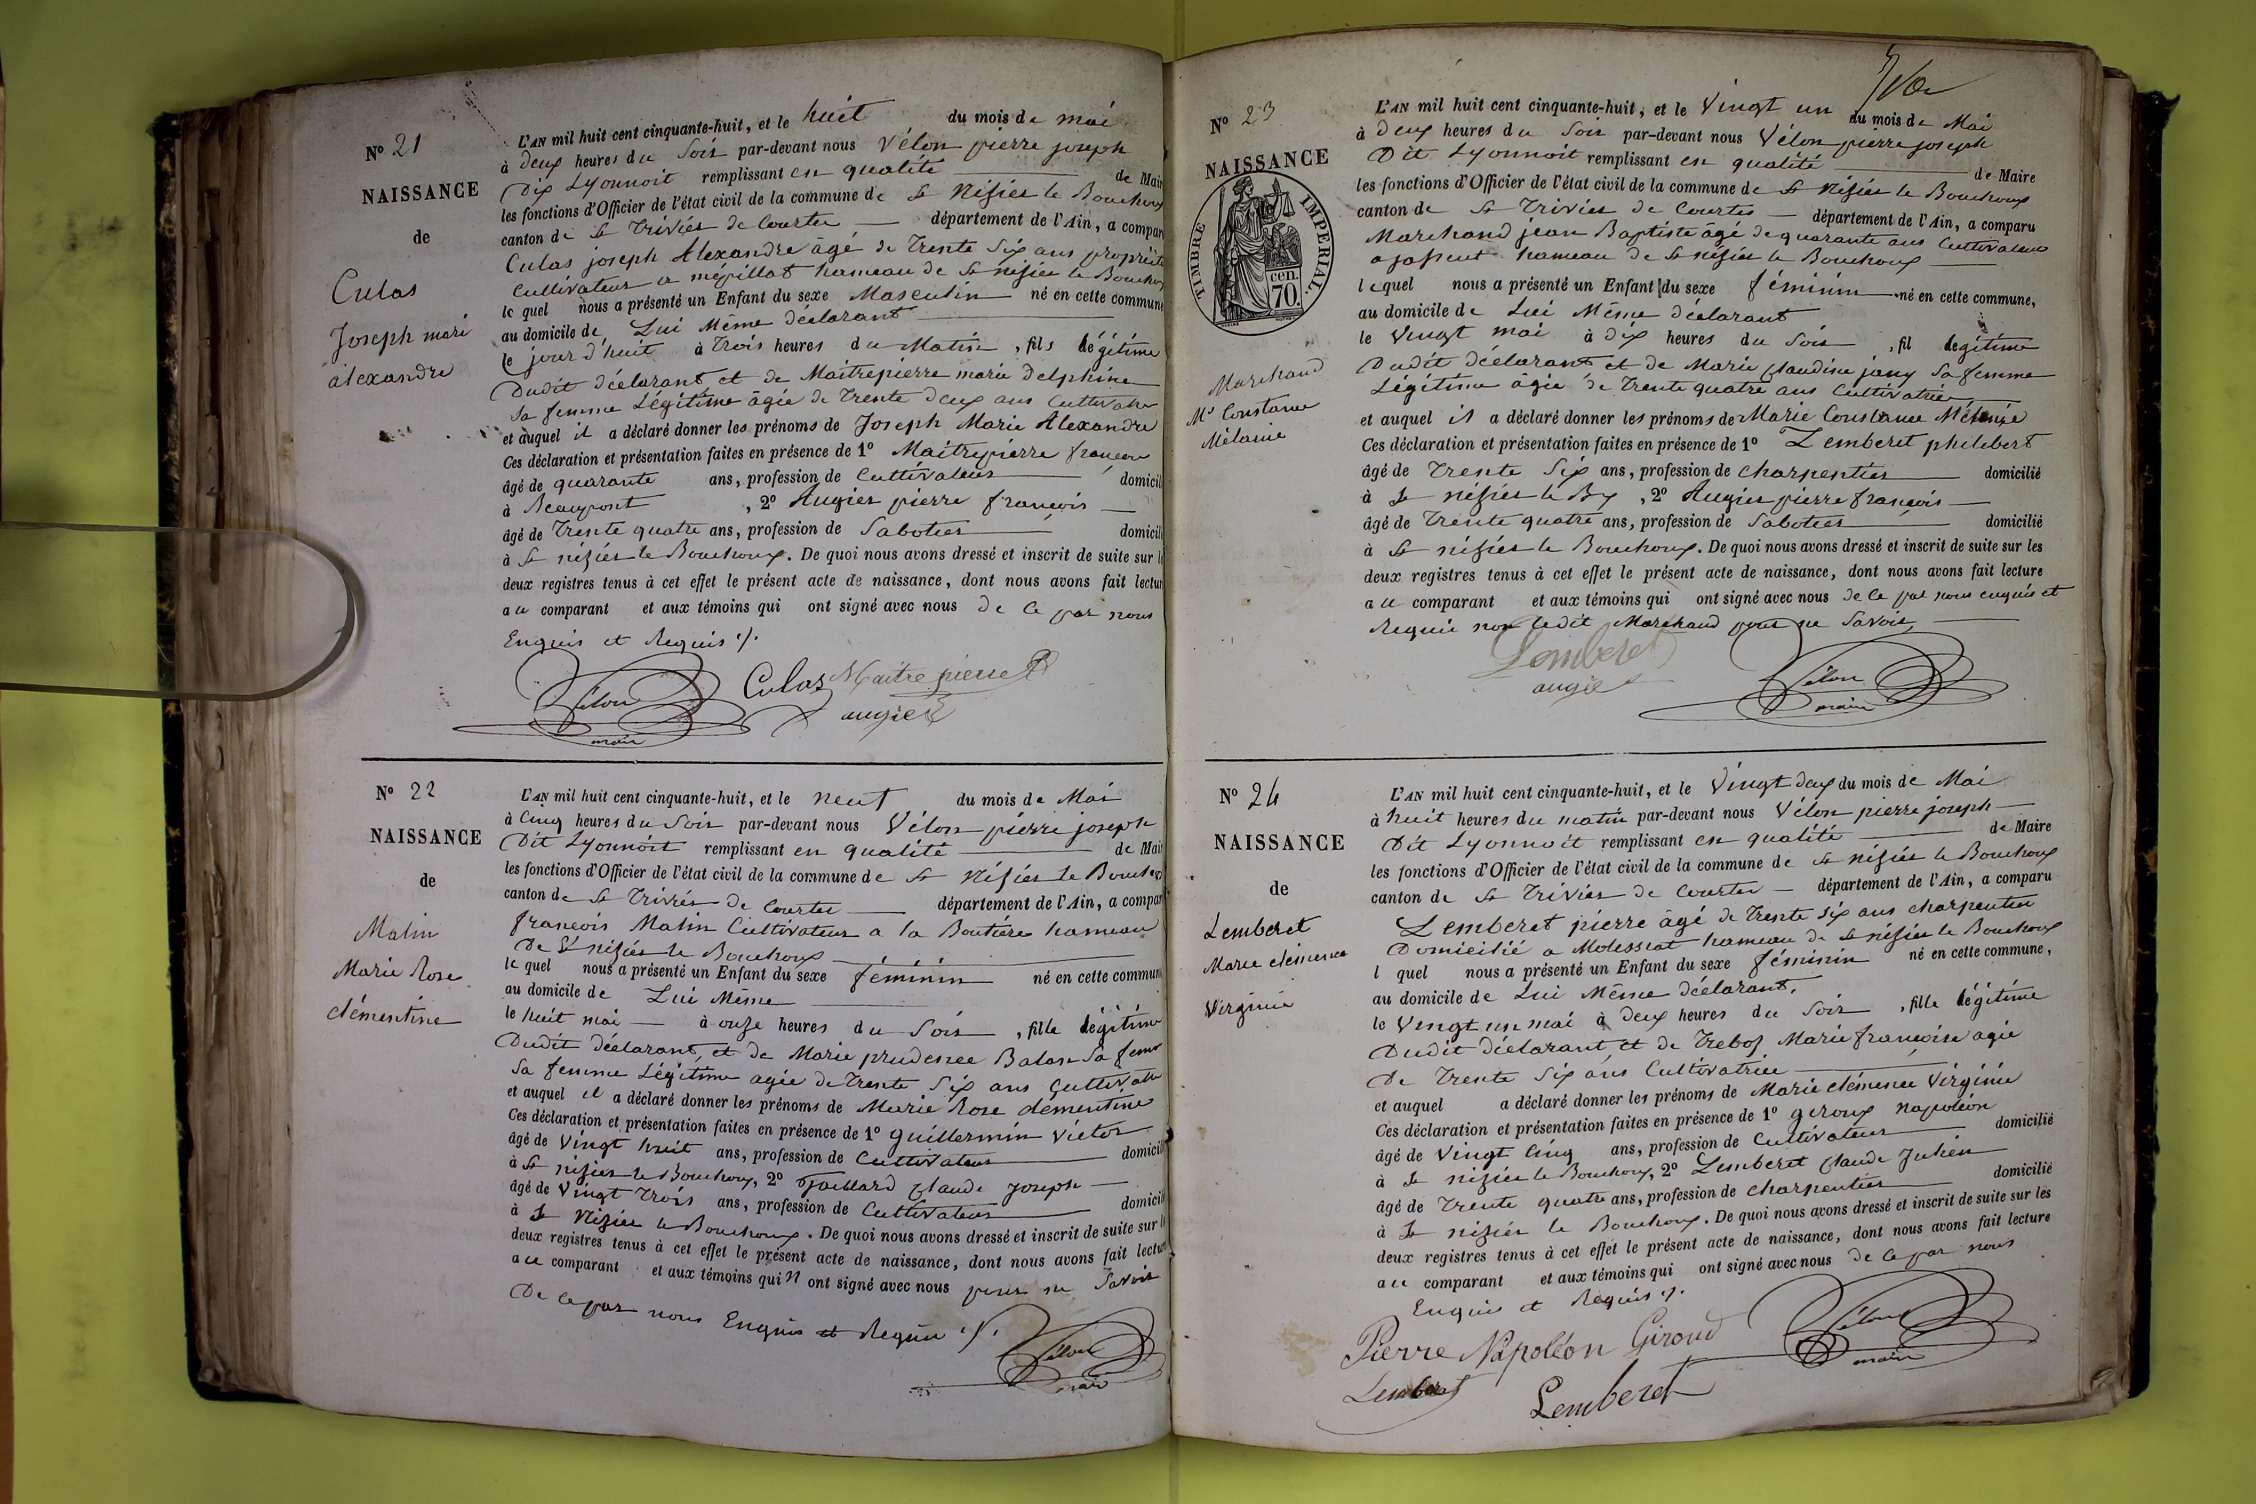 N° 21
NAISSANCE
de
Culas
Joseph mari
alexandre
L'AN mil huit cent cinquante-huit, et le huit du mois de mai
à Deux heures du Soir par-devant nous Vélon pierre joseph
Dit Lyonnoit remplissant en qualité de Mair
les fonctions d'Officier de l'état civil de la commune de St Nizier le Bouchoux
canton de St Trivier de Courtes département de l'Ain, a compar
Culas joseph Alexandre âgé de Trente Six ans propriét
Cultivateur a mépillat hameau de St nizier le Bouchoux
le quel nous a présenté un Enfant du sexe Masculin né en cette commune
au domicile de Lui Même déclarant
le jour d'huit à Trois heures du Matin, fils légitime
Dudit déclarant et de Maitrepierre marie Delphine
Sa femme Légitime âgée de Trente deux ans Cultivatr
et auquel il a déclaré donner les prénoms de Joseph Marie Alexandre
Ces déclaration et présentation faites en présence de 1° Maitrepierre françois
âgé de quarante ans, profession de Cultivateur domicil
à Beaupont, 2° Augier pierre françois
âgé de Trente quatre ans, profession de Sabotier domicili
à St nizier le Bouchoux. De quoi nous avons dressé et inscrit de suite sur l
deux registres tenus à cet effet le présent acte de naissance, dont nous avons fait lectur
au comparant et aux témoins qui ont signé avec nous de ce par nous
Enquis et Requis ./.
Vélon Culas Maitre pierre
maire augier
N° 22
NAISSANCE
de
Matin
Marie Rose
clémentine
L'AN mil huit cent cinquante-huit, et le neuf du mois de Mai
à Cinq heures du Soir par-devant nous Vélon pierre joseph
Dit Lyonnoit remplissant en qualité de Mair
les fonctions d'Officier de l'état civil de la commune de St Nizier le Bouchoux
canton de St Trivier de Courtes département de l'Ain, a compar
françois Matin Cultivateur a la Boutière hameau
De St nizier le Bouchoux
le quel nous a présenté un Enfant du sexe féminin né en cette commun
au domicile de Lui Même
le huit mai à onze heures du Soir, fille légitime
Dudit déclarant, et de Marie prudence Balan Sa femme
Sa femme Légitime agée de Trente Six ans Cultivatr
et auquel il a déclaré donner les prénoms de Marie Rose clémentine
Ces déclaration et présentation faites en présence de 1° guillermin Victor
âgé de Vingt huit ans, profession de Cultivateur domicili
à St nizier le Bouchoux, 2° Gaillard Claude Joseph
âgé de Vingt Trois ans, profession de Cultivateur domicili
à St Nizier le Bouchoux. De quoi nous avons dressé et inscrit de suite sur l
deux registres tenus à cet effet le présent acte de naissance, dont nous avons fait lectur
au comparant et aux témoins qui n ont signé avec nous pour ne Savoir
De ce par nous Enquis et Requis ./.
Vélon
maire
N° 23
NAISSANCE
TIMBRE IMPÉRIAL
70 cen.
Marchand
Mie Constance
Mélanie
L'AN mil huit cent cinquante-huit, et le Vingt un du mois de Mai
à Deux heures du Soir par-devant nous Vélon pierre joseph
Dit Lyonnoit remplissant en qualité de Maire
les fonctions d'Officier de l'état civil de la commune de St Nizier le Bouchoux
canton de St Trivier de Courtes département de l'Ain, a comparu
Marchand jean Baptiste âgé de quarante ans Cultivateur
hameau de St nizier le Bouchoux
lequel nous a présenté un Enfant du sexe féminin né en cette commune,
au domicile de Lui Même déclarant
le Vingt mai à dix heures du Soir, fil légitime
Dudit déclarant et de Marie Claudine jany Sa femme
Légitime âgée de Trente quatre ans Cultivatrice
et auquel il a déclaré donner les prénoms de Marie Constance Mélanie
Ces déclaration et présentation faites en présence de 1° Lemberet philibert
âgé de Trente Six ans, profession de charpentier domicilié
à St nizier le Bx, 2° Augier pierre françois
âgé de Trente quatre ans, profession de Sabotier domicilié
à St nizier le Bouchoux. De quoi nous avons dressé et inscrit de suite sur les
deux registres tenus à cet effet le présent acte de naissance, dont nous avons fait lecture
au comparant et aux témoins qui ont signé avec nous de ce par nous enquis et
Requis non ledit Marchand pour ne Savoir
Lemberet
augier Vélon
maire
N° 24
NAISSANCE
de
Lemberet
Marie clémence
Virginie
L'AN mil huit cent cinquante-huit, et le Vingt deux du mois de Mai
à huit heures du matin par-devant nous Vélon pierre joseph
Dit Lyonnoit remplissant en qualité de Maire
les fonctions d'Officier de l'état civil de la commune de St nizier le Bouchoux
canton de St Trivier de Courtes département de l'Ain, a comparu
Lemberet pierre âgé de Trente six ans charpentier
Domicilié a Molessiat hameau de St nizier le Bouchoux
l quel nous a présenté un Enfant du sexe féminin né en cette commune,
au domicile de Lui Même déclarant.
le Vingt un mai à deux heures du Soir, fille légitime
Dudit déclarant et de Treboz Marie françoise agée
De Trente Six ans Cultivatrice
et auquel a déclaré donner les prénoms de Marie clémence Virginie
Ces déclaration et présentation faites en présence de 1° giroux napoléon
âgé de Vingt Cinq ans, profession de Cultivateur domicilié
à St nizier le Bouchoux, 2° Lemberet Claude Julien
âgé de Trente quatre ans, profession de charpentier domicilié
à St nizier le Bouchoux. De quoi nous avons dressé et inscrit de suite sur les
deux registres tenus à cet effet le présent acte de naissance, dont nous avons fait lecture
au comparant et aux témoins qui ont signé avec nous de ce par nous
Enquis et Requis ./.
Pierre Napoléon Giroud Vélon
maire
Lemberet Lemberet